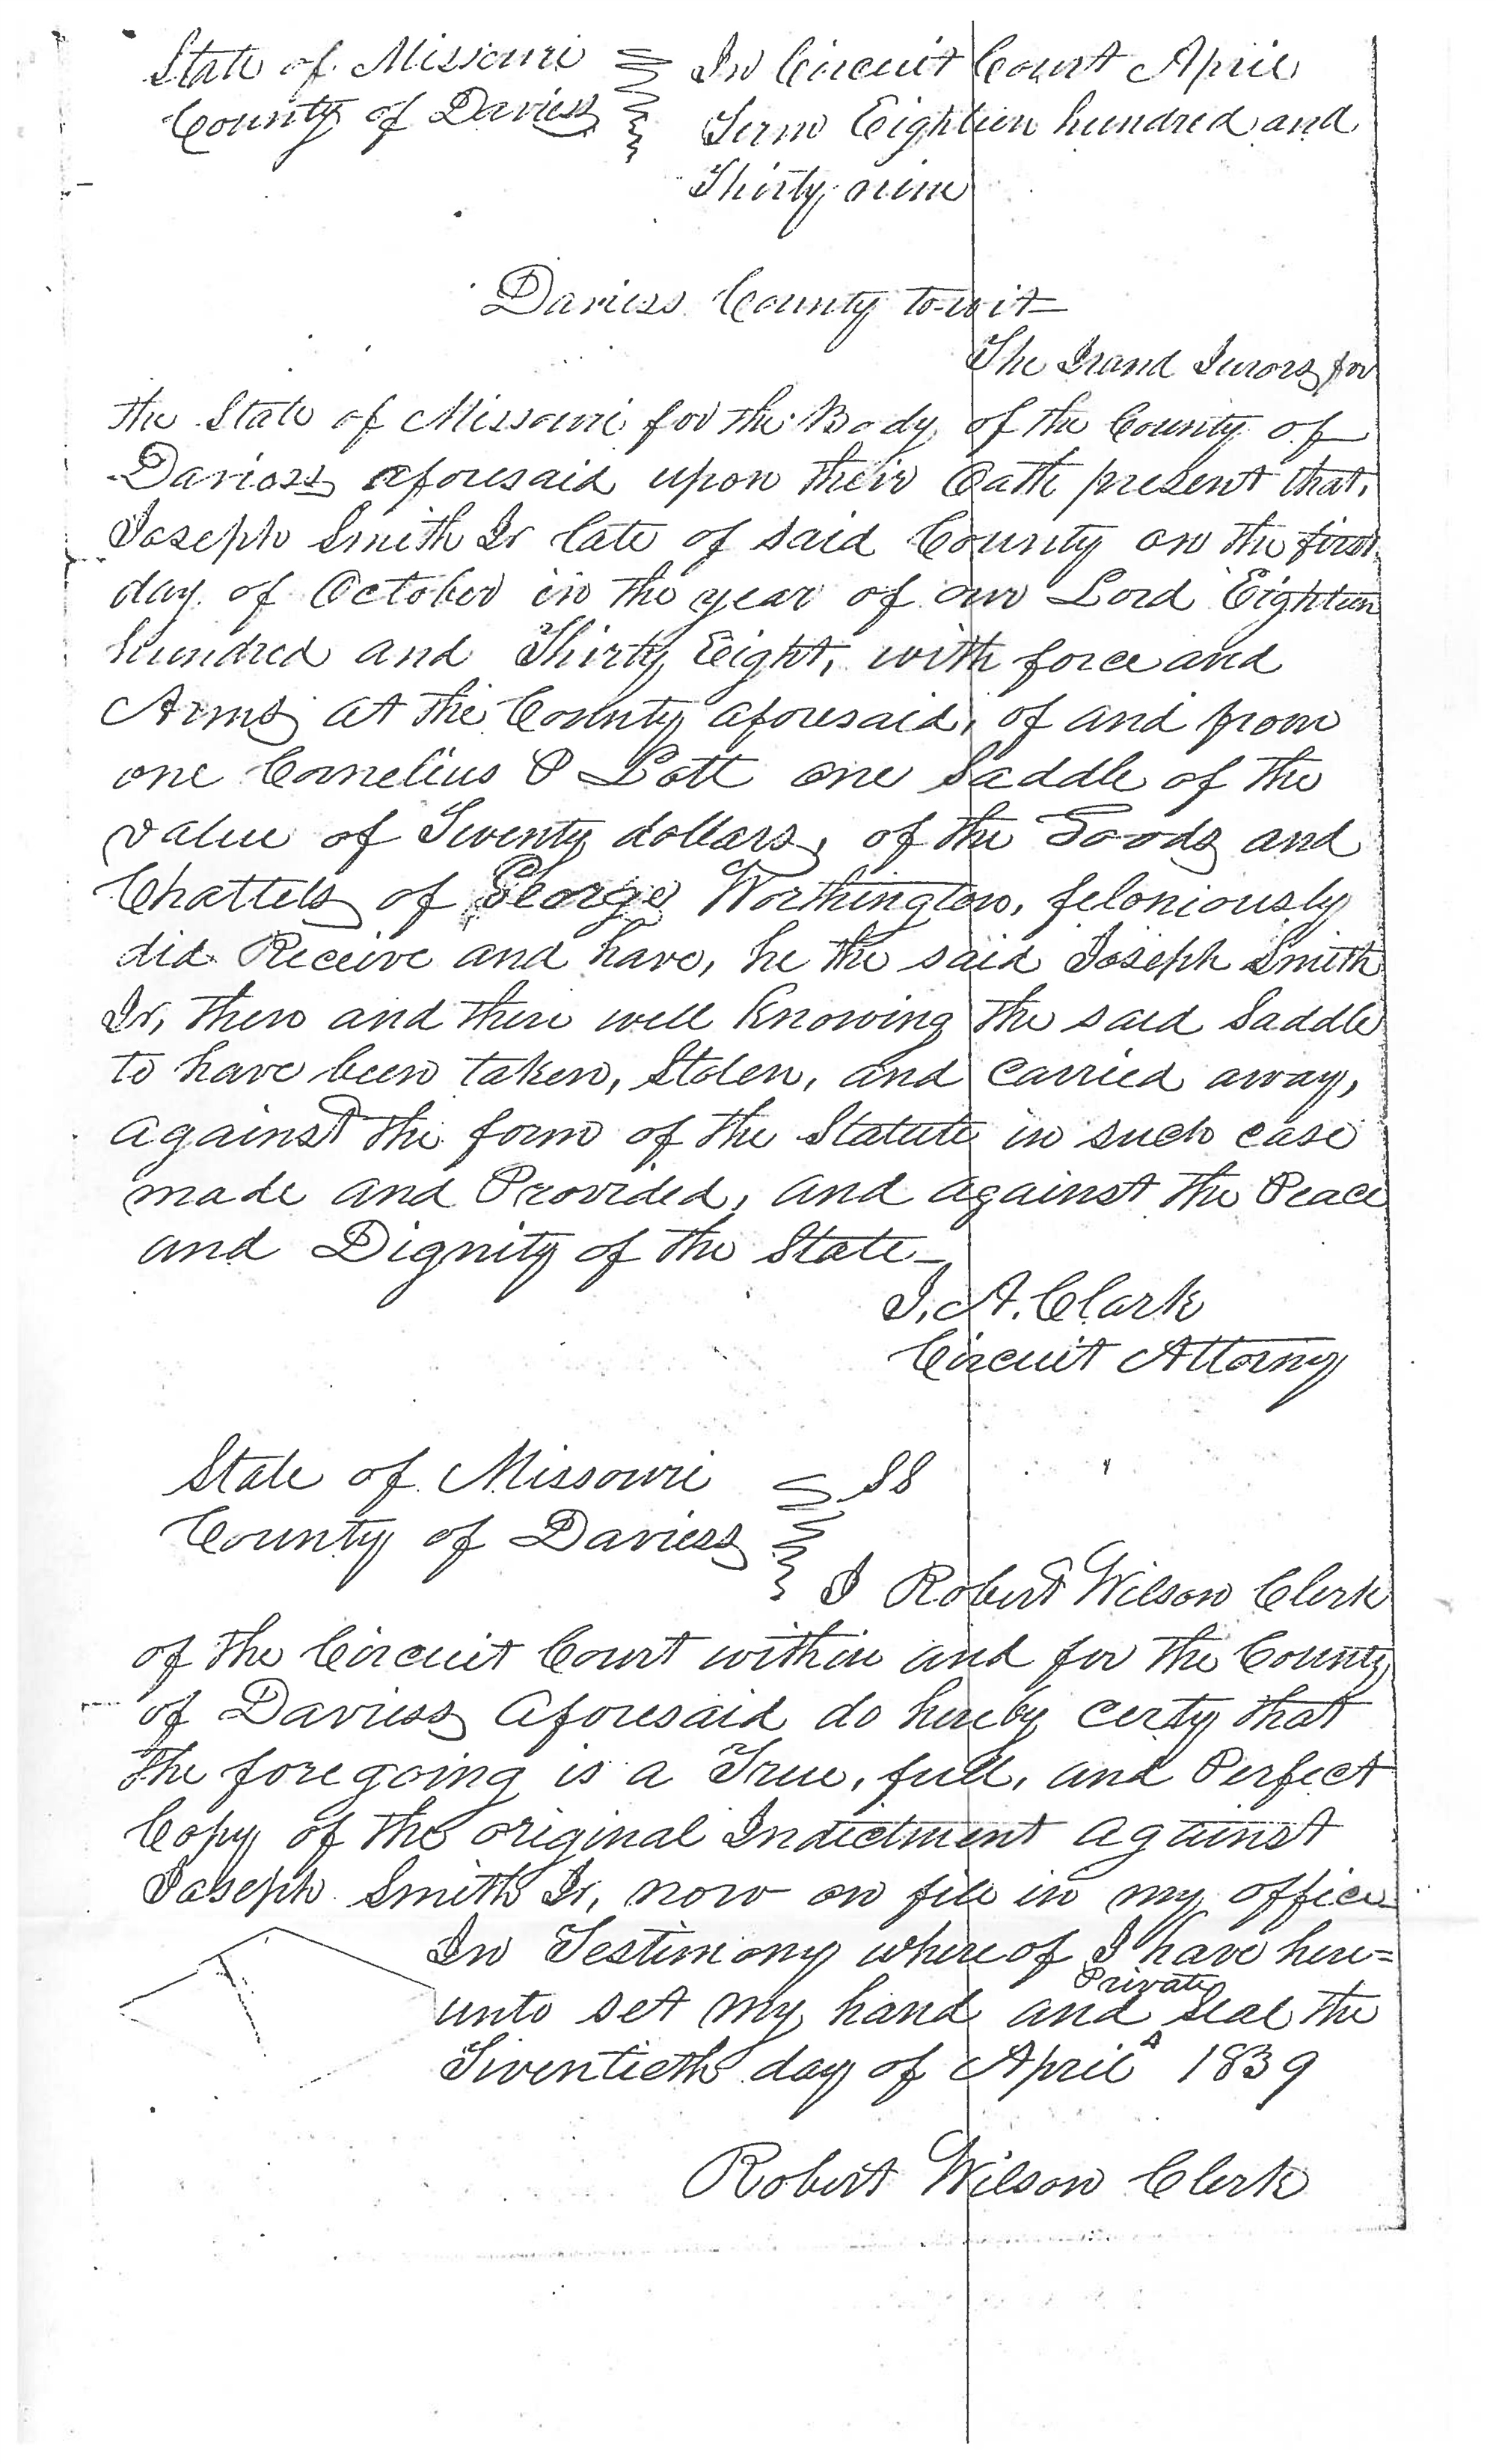 State of Missouri In Circuit Court April
County of Daviess Term Eighteen hundred and
Thirty nine
Daviess County to-wit
The Grand Jurors for
the State of Missouri for the Body of the County of
Daviess aforesaid upon their Oath present that,
Joseph Smith Jr late of said County on the first
day of October in the year of our Lord Eighteen
hundred and Thirty Eight, with force and
Arms at the County aforesaid, of and from
one Cornelius P Lott one Saddle of the
value of Twenty dollars, of the Goods and
Chattels of George Worthington, feloniously
did Receive and have, he the said Joseph Smith
Jr, then and there well Knowing the said Saddle
to have been taken, Stolen, and Carried away,
against the form of the Statute in such case
made and Provided, and against the Peace
and Dignity of the State—
J. A. Clark
Circuit Attorny
State of Missouri SS
County of Daviess
I Robert Wilson Clerk
of the Circuit Court within and for the County
of Daviess aforesaid do hereby certy that
the foregoing is a True, full, and Perfect
Copy of the original Indictment against
Joseph Smith Jr, now on file in my office
In Testimony whereof I have here=
Private
unto set my hand and seal the
Twentieth day of April 1839
Robert Wilson Clerk